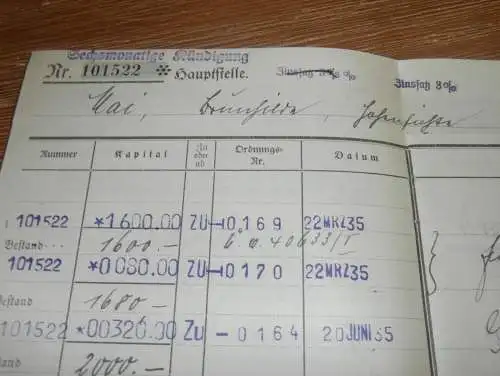 Sechsmonatige Kündigung
Nr. 101522 ※ Hauptstelle. Zinssatz % Zinssatz 3%
Mai, Brunhilde, Hohenfichte
Nummer Kapital Zu oder ab Ordnungs-Nr. Datum
101522 *1600.00 ZU — 0169 22 MRZ 35
Bestand 1600.-
101522 *0080.00 ZU — 0170 22 MRZ 35
Bestand 1680.-
101522 *00320.00 Zu — 0164 20 JUNI 35
stand 2000.-